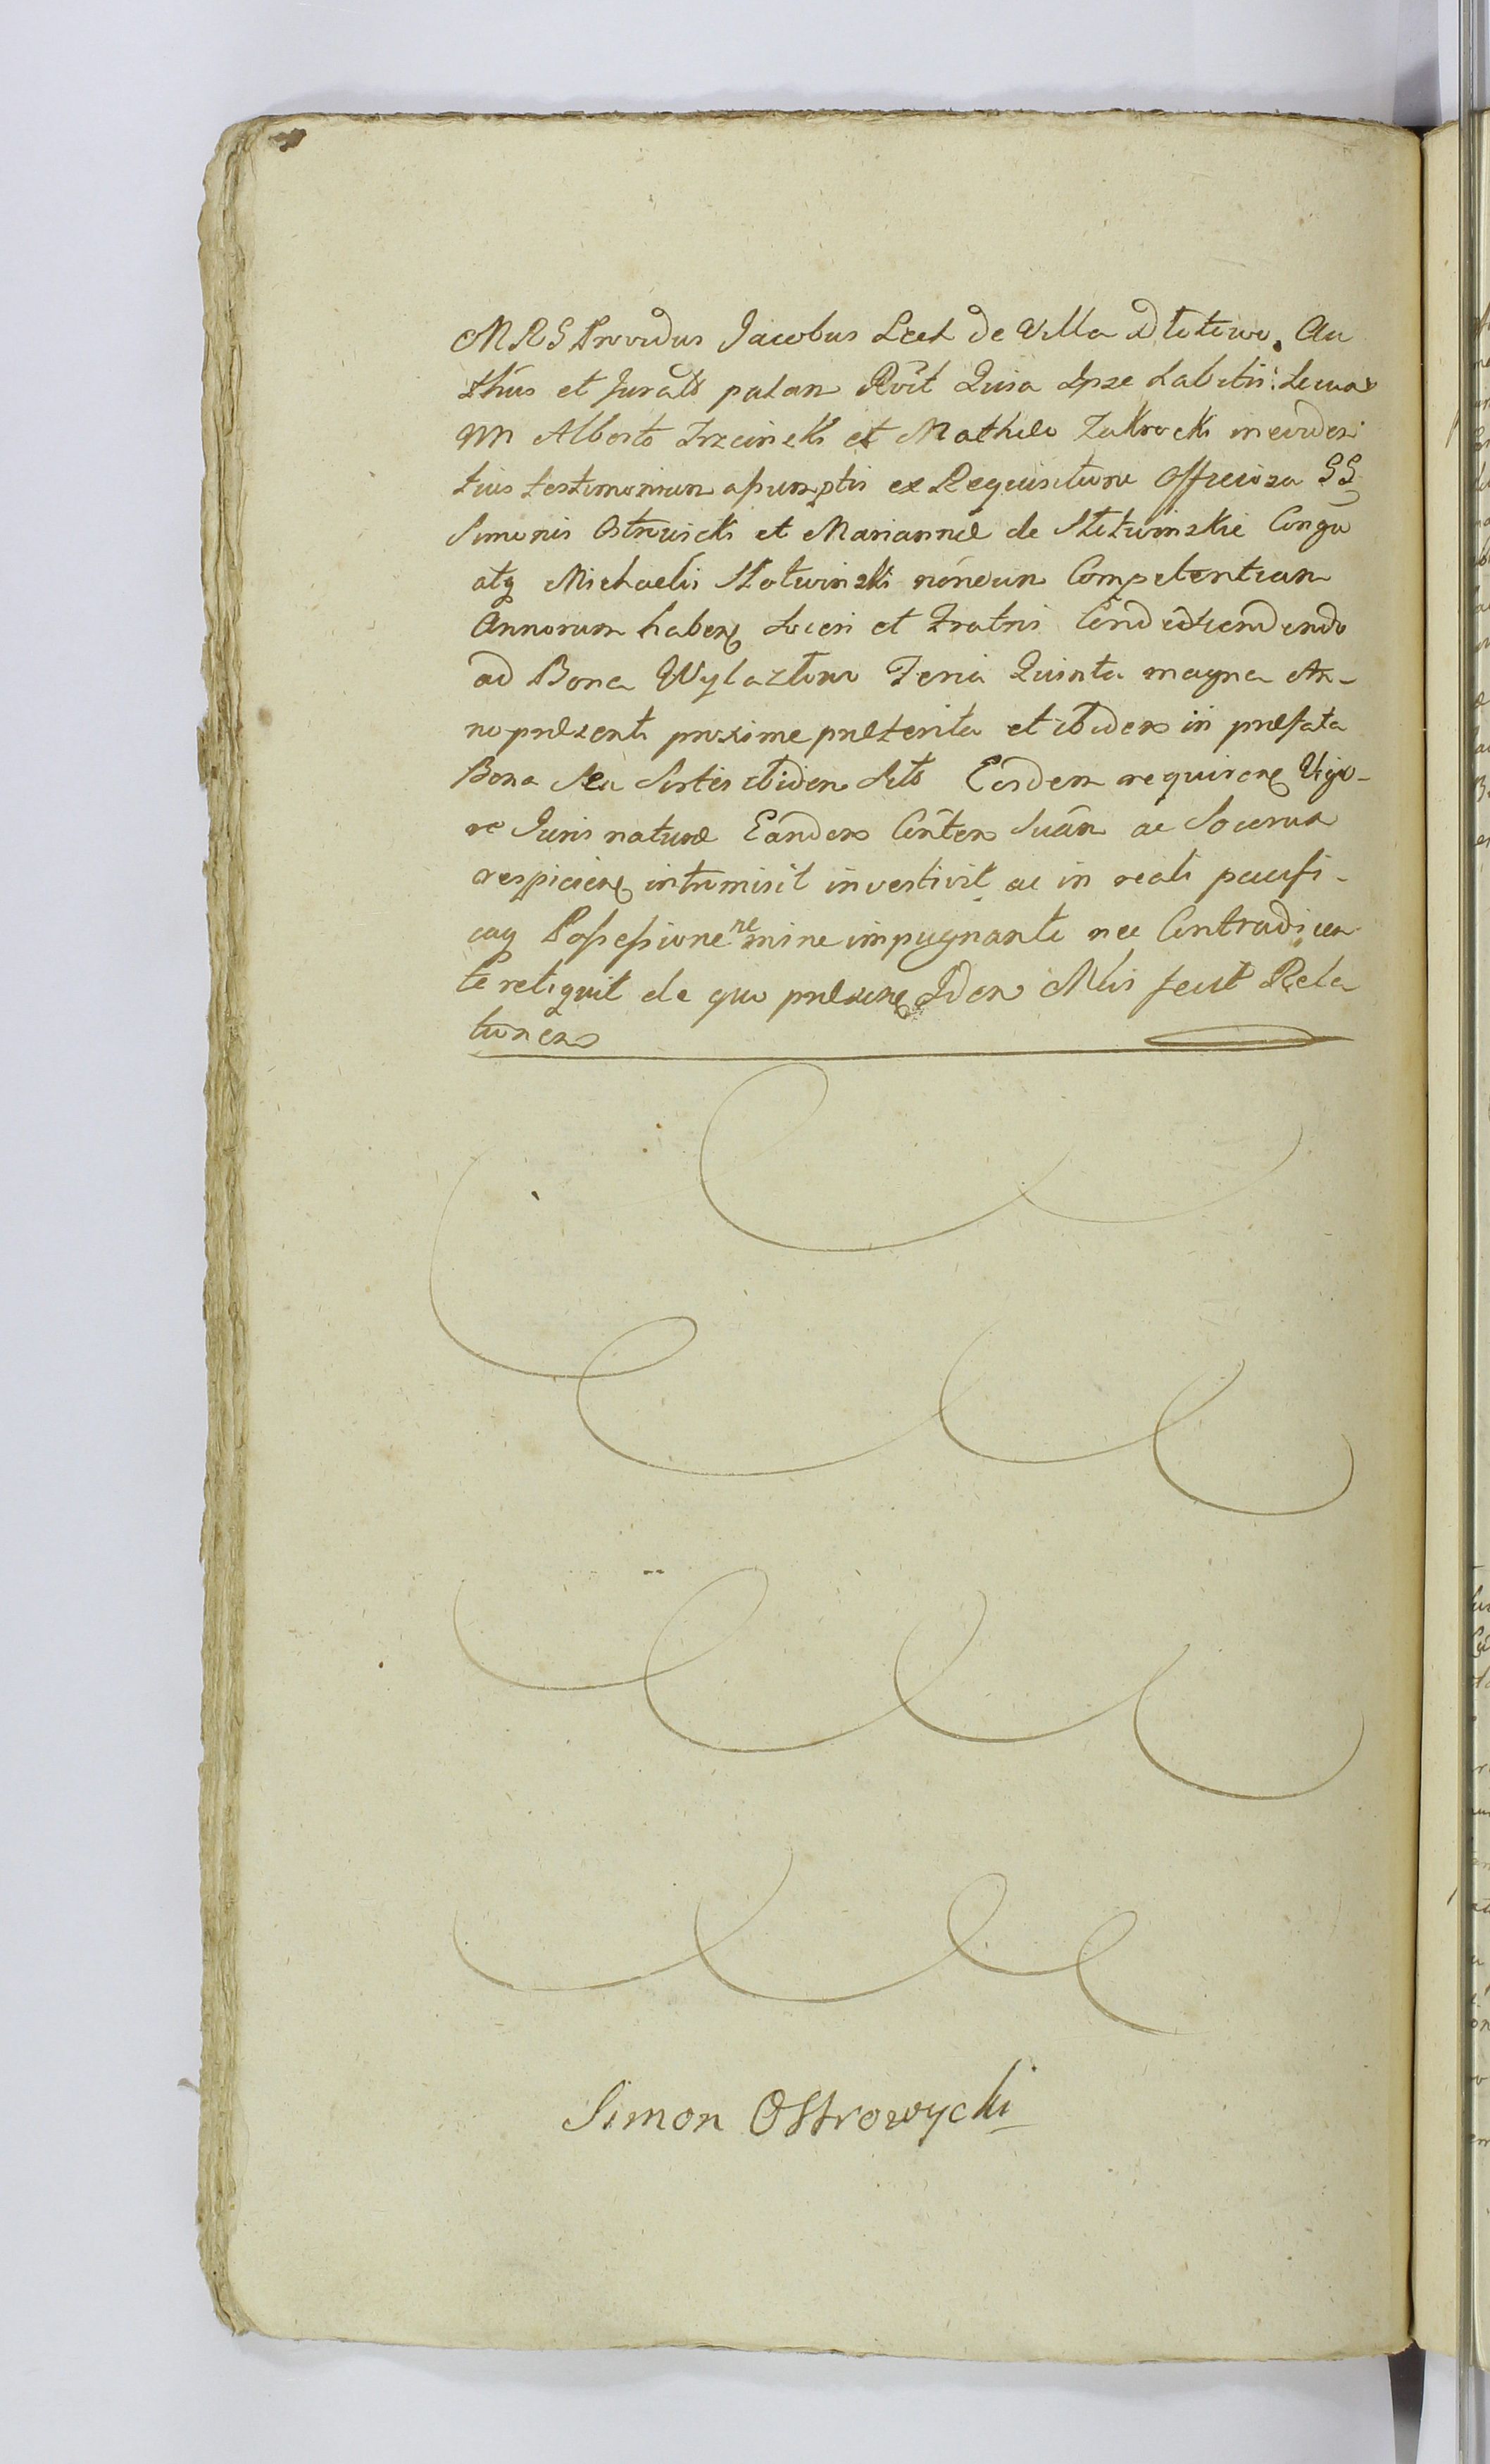 MRS Providus Jacobus Lech de Villa Dłotowo. Au
thûs et Jurats palan Rôit Quia Ipse habitis Secum
NN Alberto Trzcinski et Mathæo Zakrocki in eviden
tius testimonium assumptis ex Requisitione Officiosa GG
Simonis Ostrowicki et Mariannæ de Słotwinskie Congu
atq Michaelis Słotwinski nóndum Competentiam
Annorum haben Soceri et Fratris Condescendendo
ad Bona Wylaztowo Feria Quinta magna An-
no præsenti proxime præterita et ibidem in præfata
Bona Seu Sortes ibidem Sits Eosdem requiren Vigo-
re Juris naturæ Eandem Centem Suam ac Socerum
respicien intromisit investivit ac in reali pacifi-
caq Possessione nemine impugnante nec Contradicen
te reliquit de quo præmen Idem Mlis fecit Rela
tionem
Simon Ostrowycki